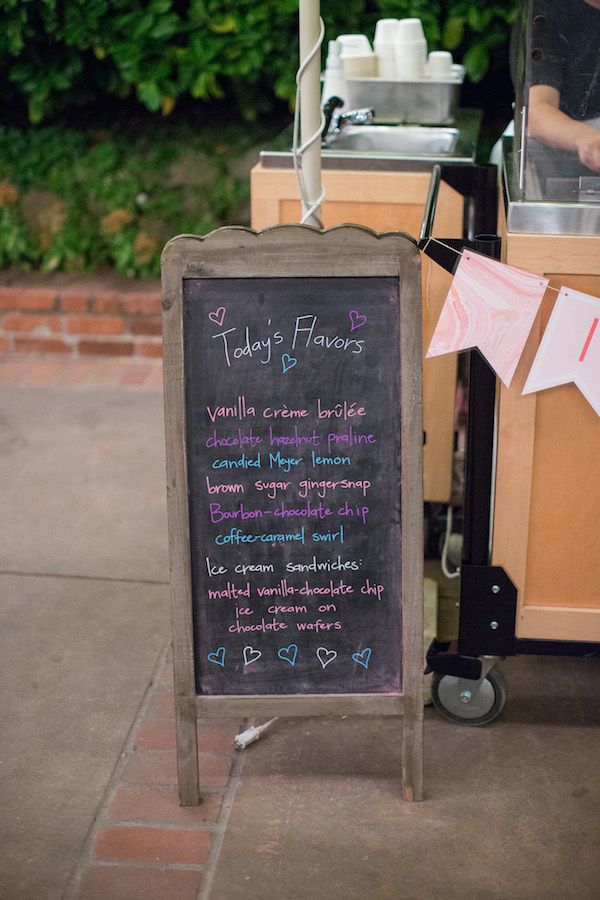 Today's Flavors
vanilla crème brûlée
chocolate hazelnut praline
candied Meyer lemon
brown sugar gingersnap
Bourbon-chocolate chip
coffee-caramel swirl
Ice cream sandwiches:
malted vanilla-chocolate chip
ice cream on
chocolate wafers